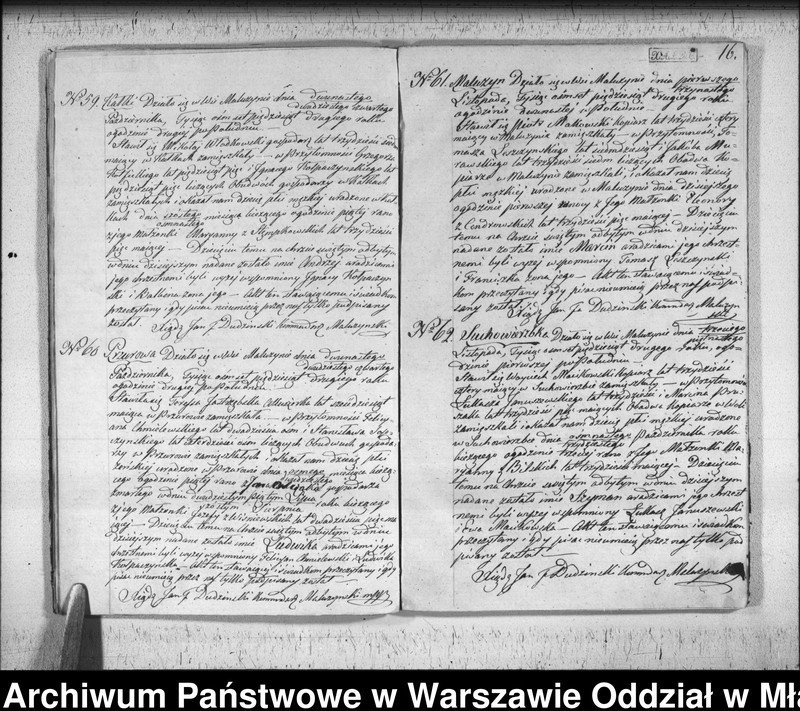 16.
No 59. Kątki Działo się w Wsi Maluzynie dnia dwunastego
dwudziestego czwartego
Października, Tysiąc ośmset pięćdziesiąt drugiego roku
ogodzinie drugiej po południu –
Stawił się Mikołaj Władkowski gospodarz lat trzydzieści siedm
mający w Kątkach zamieszkały – w przytomności Grzegorza
lat pięćdziesiąt pięć i Ignacego Kołpaczyńskiego lat
pięćdziesiąt pięć liczących Obudwóch gospodarzy w Kątkach
zamieszkałych i okazał nam dziecię płci męzkiej urodzone w Kąt-
kach dnia szóstego miesiąca bieżącego ogodzinie piątej rano
osmnastego
z jego Małżonki Maryanny z lat trzydzieści
pięć mającej – Dziecięciu temu na chrzcie świętym odbytym
w dniu dzisiejszym nadane zostało imie Andrzej arodzicami
jego chrzestnemi byli wyżej wspomniony Ignacy Kołpaczyń-
ski i Balbina żona jego – Akt ten stawającemu i świadkom
przeczytany i gdy pisać nieumieją przez nas tylko podpisany
został – Xiądz Jan F Dudziński Kommendarz Maluzynski
No 60 Przurowa Działo się w Wsi Maluzynie dnia dwunastego
dwudziestego czwartego
Października, Tysiąc ośmset pięćdziesiąt drugiego roku
ogodzinie drugiej po południu –
Stawiła się Józefa Jastrzębska Akuszerka lat sześćdziesiąt
mająca w Przurowie zamieszkała – w przytomności Felicy-
ana Chmielewskiego lat dwadzieścia ośm i Stanisława
lat czterdzieści ośm liczących Obudwóch gospoda-
rzy w Przurowie zamieszkałych i okazała nam dziecię płci
żeńskiej urodzone w Przurowie dnia osmego miesiąca bieżą-
cego ogodzinie piątej rano z Jana gospodarza
zmarłego w dniu dwudziestym piątym Lipca roku bieżącego
szóstym Sierpnia
z jego Małżonki Józefy z Wiśniewskich lat dwadzieścia pięć ma-
jącej – Dziecięciu temu na chrzcie świętym odbytym w dniu
dzisiejszym nadane zostało imie Ludwika arodzicami jego
chrzestnemi byli wyżej wspomniony Felicyan Chmielewski i Ludwika
Kołpaczyńska – Akt ten stawającej i świadkom przeczytany i gdy
pisać nieumieją przez nas tylko podpisany został –
Xiądz Jan F Dudziński Kommendarz Maluzynski
No 61. Maluzyn Działo się w Wsi Maluzynie dnia pierwszego
trzynastego
Listopada, Tysiąc ośmset pięćdziesiąt drugiego roku
ogodzinie dwunastej w południe –
Stawił się Piotr Makowski Kopiarz lat trzydzieści cztery
mający w Maluzynie zamieszkały – w przytomności To-
masza Leszczyńskiego lat siedmdziesiąt i Jakóba Mu-
rawskiego lat trzydzieści siedm liczących Obudwa Ko-
piarze w Maluzynie zamieszkali, i okazał nam dziecię
płci męzkiej urodzone w Maluzynie dnia dzisiejszego
ogodzinie pierwszej rano z jego Małżonki Eleonory
z Condrowskich lat trzydzieści pięć mającej – Dziecięciu
temu na Chrzcie świętym odbytym w dniu dzisiejszym
nadane zostało imie Marcin arodzicami jego chrzest-
nemi byli wyżej wspomniony Tomasz Leszczyński
i Franciszka żona jego – Akt ten stawającemu i świad-
kom przeczytany i gdy pisać nieumieją przez nas podpi-
sany został – Xiądz Jan F Dudziński Kommendarz Maluzyn
ski
No 62. Suchowierzbka Działo się w Wsi Maluzynie dnia trzeciego
piętnastego
Listopada, Tysiąc ośmset pięćdziesiąt drugiego roku, ogo-
dzinie pierwszej po południu –
Stawił się Woyciech Maćkowski Kopiarz lat trzydzieści
cztery mający w Suchowierzbie zamieszkały – w przytomności
Łukasza Januszewskiego lat trzydzieści i Marcina
lat trzydzieści pięć mających Obudwa Kopiarze w Woli
zamieszkali i okazał nam dziecię płci męzkiej urodzone
w Suchowierzbie dnia osmnastego Października roku
trzydziestego
bieżącego ogodzinie trzeciej rano z jego Małżonki Ma-
ryanny z Bilskich lat trzydzieści mającej. Dziecięciu
temu na Chrzcie świętym odbytym w dniu dzisiejszym
nadane zostało imie Szymon arodzicami jego chrzest-
nemi byli wyżej wspomniony Łukasz Januszewski
i Ewa Maćkowska – Akt ten stawającemu i świadkom
przeczytany i gdy pisać nieumieją przez nas tylko pod-
pisany został –
Xiądz Jan F Dudziński Kommendarz Maluzynski
Archiwum Państwowe w Warszawie Oddział w Mła